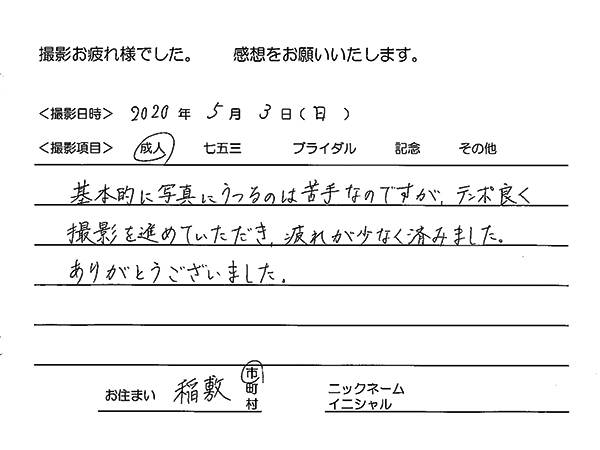 撮影お疲れ様でした。　感想をお願いいたします。
＜撮影日時＞ 2020 年 5 月 3 日（日）
＜撮影項目＞ 成人 七五三 ブライダル 記念 その他
基本的に写真にうつるのは苦手なのですが、テンポ良く
撮影を進めていただき、疲れが少なく済みました。
ありがとうございました。
お住まい 稲敷 市町村
ニックネーム
イニシャル